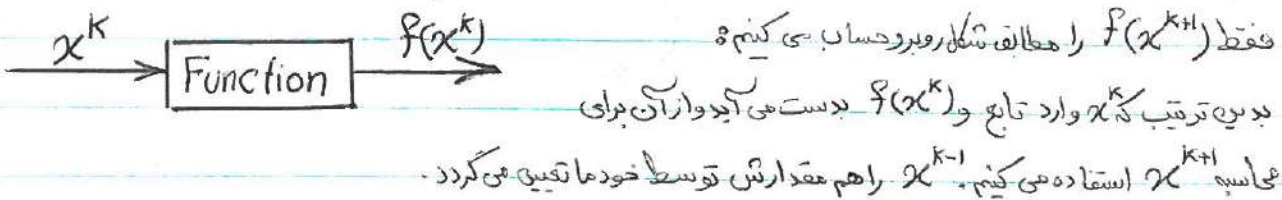 فقط f(x^{k+1}) را مطابق شکل روبرو حساب می کنیم:
x^k
Function
f(x^k)
بدین ترتیب که x^k وارد تابع و f(x^k) بدست می آید و از آن برای
محاسبه x^{k+1} استفاده می کنیم. x^{k-1} را هم مقدارش توسط خود ما تعیین می گردد.